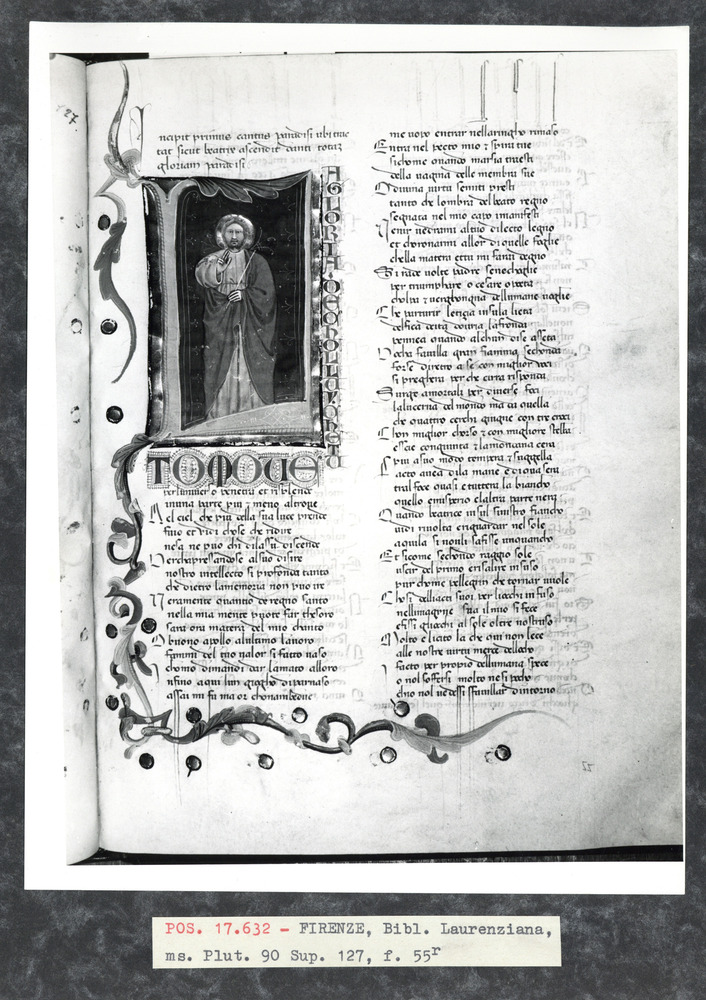 127
Incipit primus cantus paradisi ubi trac
tat sicut beatrix ascendit
gloriam paradisi
A GLORIA DECHOLLUI
TOMOUE
per luniuerso penetra et risplende
in una parte piu z meno altroue
Nel ciel che piu della sua luce prende
fuio et vidi chose che ridire
ne sa ne puo chi di la su discende
Perche apressandose al suo disire
nostro intellecto si profonda tanto
che dietro la memoria non puo ire
Veramente quantio de regno santo
nella mia mente puote far thesoro
sara ora materia del mio chanto
O buono apollo alultimo lauoro
fammi del tuo ualor si facto uaso
chomo dimandi dar lamato alloro
nfino a qui lun giogho di parnaso
assai mi fu ma or chonambedue
me uopo entrar nellaringho rimaso
Entra nel pecto mio z spira tue
sichome quando marsia traesti
della uagina delle membra sue
O diuina uirtu se mi ti presti
tanto che lombra del beato regno
segnata nel mio capo i manifesti
Venir uedrami al tuo dilecto legno
et choronarmi allor di quelle foglie
che la matera et tu mi farai degno
Si rade uolte padre se ne choglie
per triumphare o cesare o poeta
cholpa z uerghongna dellumane uoglie
Che parturir letigia in su la lieta
delfica deita douria la fronda
pennea quando alchun di se asseta
Pocha fauilla gran fiamma sechonda
forse diretro a se con miglior uoci
si pregherra per che cirra risponda
Surge a mortali per diuerse foci
la lucerna del mondo ma da quella
che quatro cerchi giugne con tre croci
Chon miglior chorso z con migliore stella
esscie congiunta z la mondana cera
piu a suo modo tempera z suggella
Facto auea di la mane e di qua sera
tal foce quasi e tutto era la biancho
quello emisperio e laltra parte nera
Quando beatrice in sul sinistro fiancho
uidi riuolta e riguardar nel sole
aquila si nonli safisse unquancho
Et sicome sechondo raggio sole
uscir del primo e risalire in suso
pur chome pellegrin che tornar uuole
Chosi dellacti suoi per liocchi infuso
nellimagine mia il mio si fece
e fissi gliocchi al sole oltre nostruso
Molto e licito la che qui non lece
alle nostre uirtu merce dellocho
facto per proprio dellumana spece
o nol soffersi molto ne si pocho
chio nol uedessi sfauillar dintorno
55
POS. 17.632 - FIRENZE, Bibl. Laurenziana,
ms. Plut. 90 Sup. 127, f. 55r